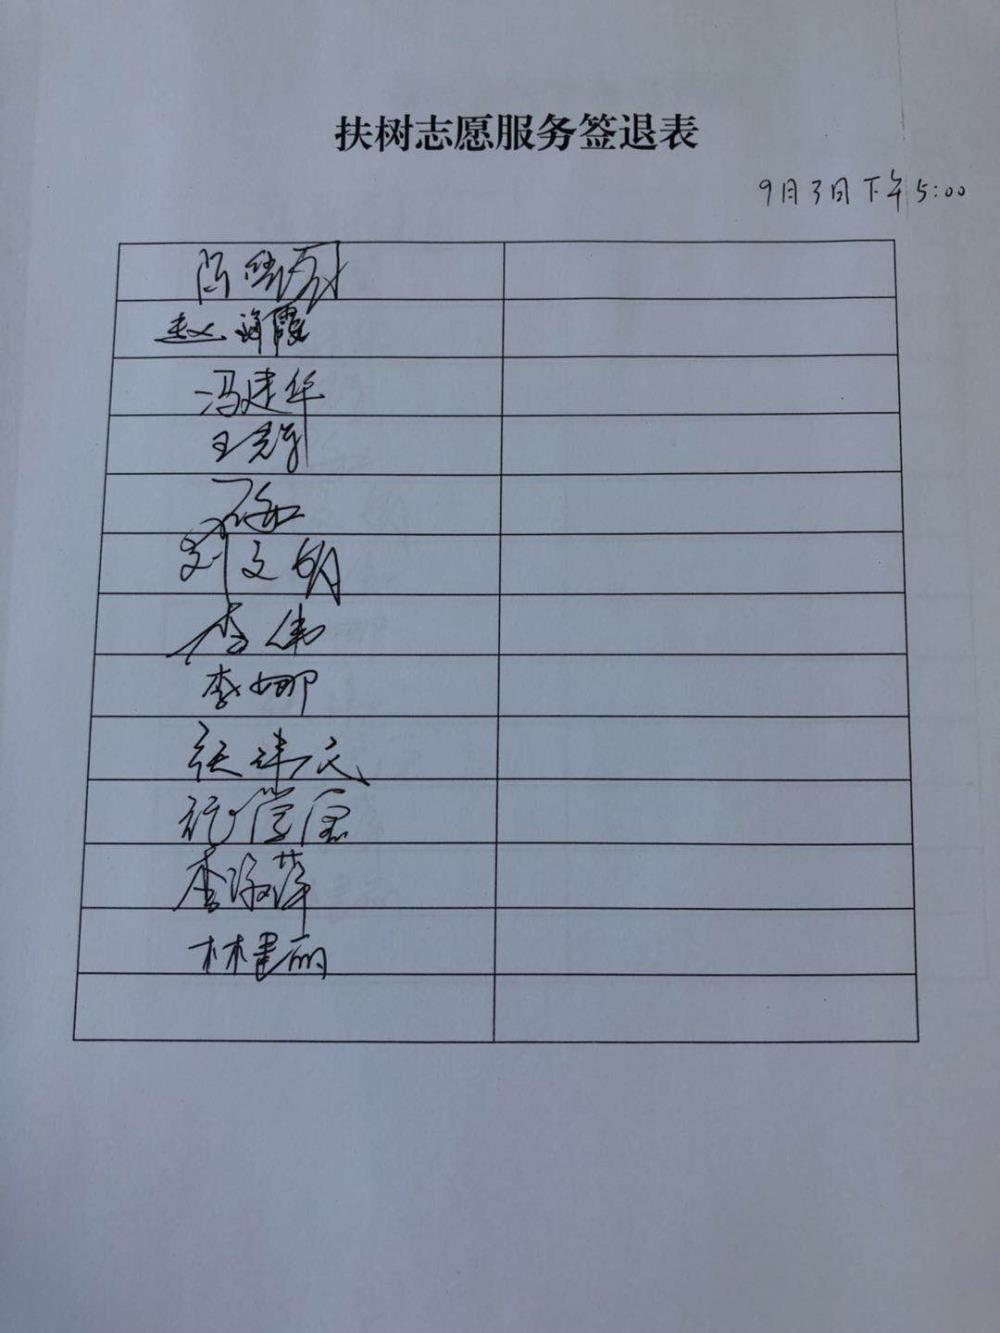 扶树志愿服务签退表
9月3日下午5:00
赵海霞
冯建华
王彦
刘文明
李伟
李娜
张建民
李淑萍
林建丽